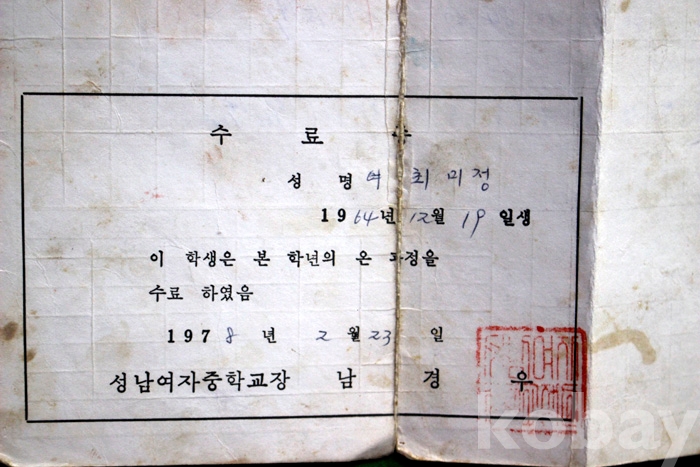 수 료
성 명 여 최미정
1964년 12월 19일생
이 학생은 본 학년의 온 과정을
수료 하였음
1978년 2월 23일
성남여자중학교장 남 경 우
kobay